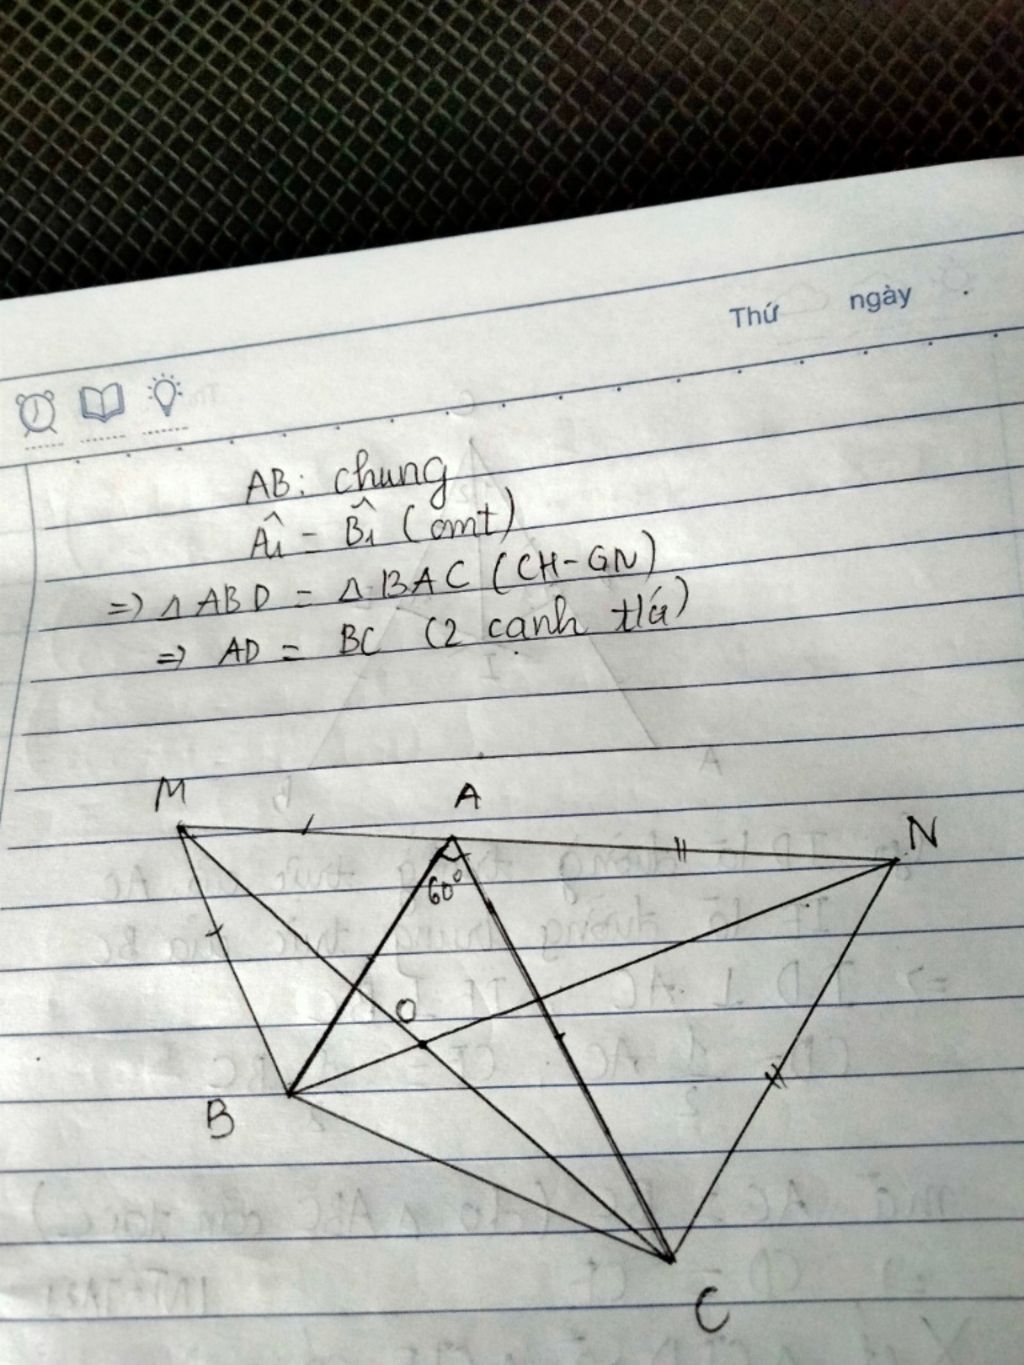 Thứ ngày
AB: chung
Â₁ = B̂₁ (cmt)
=> △ ABD = △ BAC (CH-GN)
=> AD = BC (2 cạnh t/ứ)
M A N
60°
O
B
C